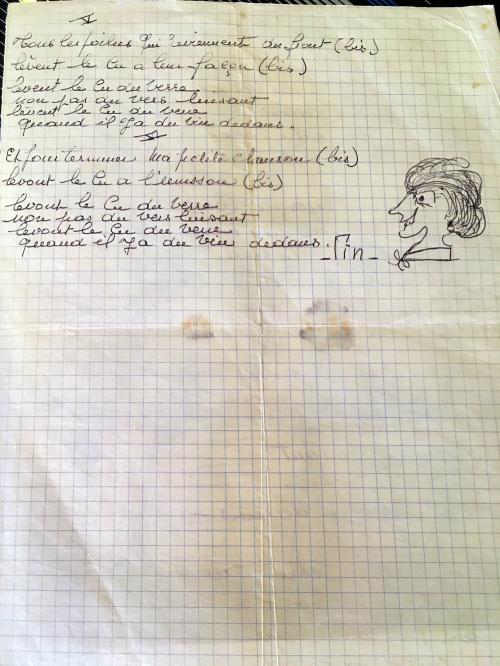 V
Tous les poilus qui reviennent du front (bis)
lèvent le Cu a leur façon (bis)
levent le Cu du verre
non pas du vers luisant
lèvent le Cu du verre
quand il ya du vin dedans.
VI
Et pour terminer ma petite chanson (bis)
levont le Cu a l'unisson (bis)
levont le Cu du verre
non pas du vers luisant
levont le Cu du verre
quand il ya du vin dedans.
_ Fin _